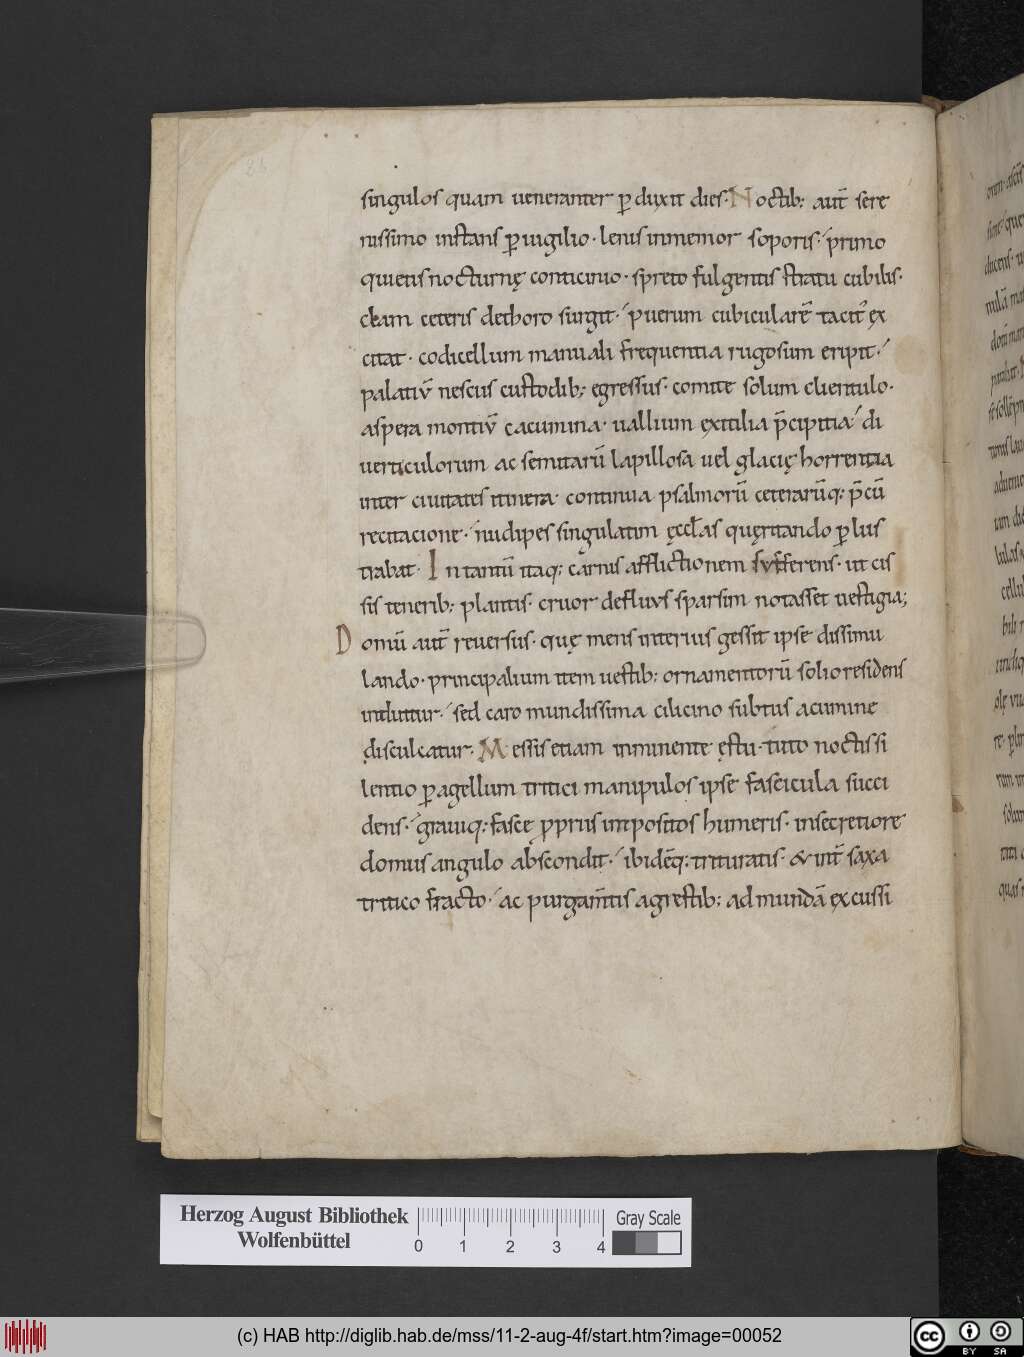 singulos quam ueneranter ꝑduxit dies. Noctib; aut̄ sere
nissimo instans ꝑuigilio. lenis inmemor soporis. primo
quietis nocturnę conticinio. spreto fulgentis stratu cubilis.
clam ceteris dethoro surgit. puerum cubicularē tacit᷒ ex
citat. codicellum manuali frequentia rugosum eripit.
palatiū nescus custodib; egressus. comite solum clientulo.
aspera montiū cacumina. uallium exitilia p̄cipitia. di
uerticulorum ac semitarū lapillosa uel glacię horrentia
inter ciuitates itinera. continua psalmorū ceterarūq; p̄cū
recitacione. nudipes singulatim ęccl̄as quęritando ꝑlus
trabat. In tantū itaq; carnis afflictionem sufferens. ut cis
sis tenerib; plantis. cruor defluus sparsim notasset uestigia;
Domū aut̄ reuersus. quę mens interius gessit ipse dissimu
lando. principalium item uestib; ornamentorū solio residens
intuitur. sed caro mundissima cilicino subtus acumine
disculcatur. Messis etiam inminente ęstu. tuto noctis si
lentio ꝑagellum tritici manipulos ipse fascicula succi
dens. grauiq; fasce ꝓprus impositos humeris. insecretiore
domus angulo abscondit. ibidēq; trituratis. & int̄ saxa
tritico fracto. ac purgam̄tis agrestib; ad mundā excussi
Herzog August Bibliothek
Wolfenbüttel
0 1 2 3 4
Gray Scale
(c) HAB http://diglib.hab.de/mss/11-2-aug-4f/start.htm?image=00052
cc BY SA